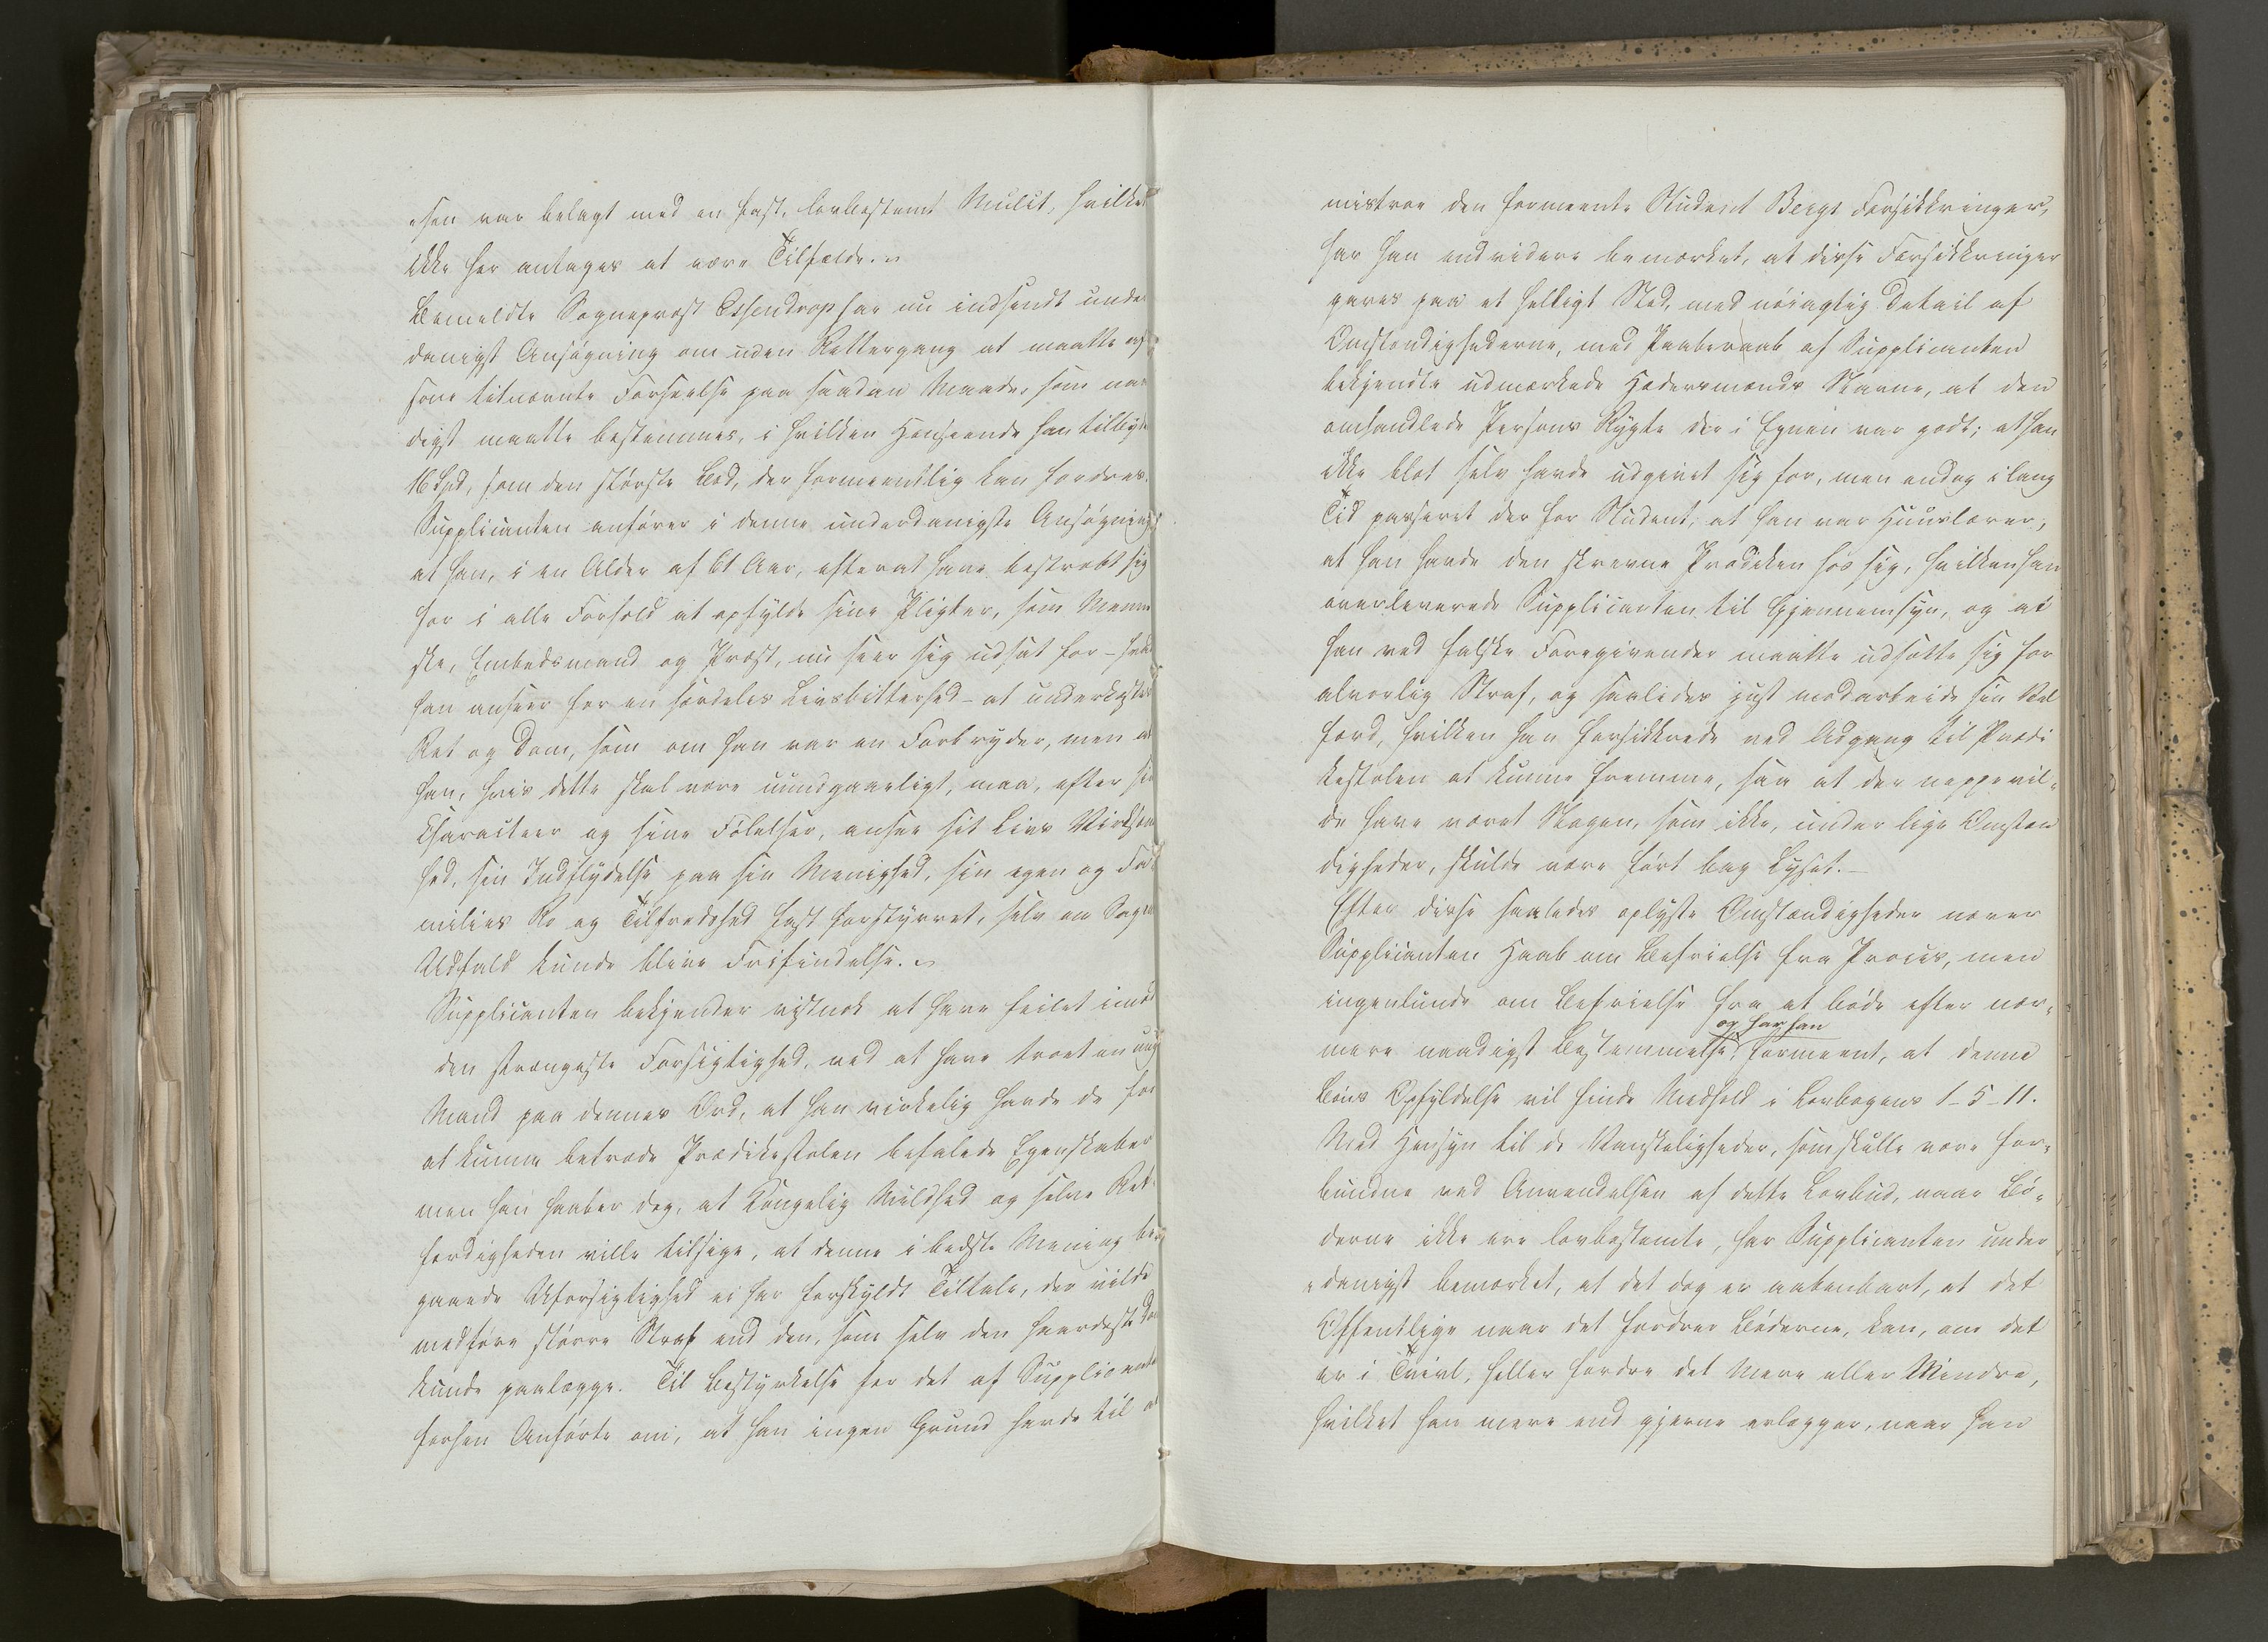 „sen var belagt med en fast, lovbestemt Mulct, hvilket
ikke her antages at være Tilfælde.
Bemeldte Sognepræst Essendrop har nu indsendt under
danigst Ansøgning om uden Rettergang at maatte af
sone bemeldte Forseelse paa saadan Maade, som naa
digst maatte bestemmes, i hvilken Henseende han tilbyder
16 Spd, som den største Bod, der formeentlig kan fordres.
Supplicanten anfører i denne underdanigste Ansøgning
at han, i en Alder af 61 Aar, efterat have bestræbt sig
for i alle Forhold at opfylde sine Pligter, som Menne
ske, Embedsmand og Præst, nu seer sig udsat for – hvad
han anseer for en særdeles Livsbitterhed – at underkastes
Ret og Dom, som om han var en Forbryder, men at
han, hvis dette skal være uundgaaeligt, maa, efter sin
Characteer og sine Følelser, ansee sit Livs Virksom
hed, sin Indflydelse paa sin Menighed, sin egen og Fa
milies Ro og Tilfredshed fast forstyrret, selv om Sagens
Udfald kunde blive Frifindelse.
Supplicanten bekjender vistnok at have feilet imod
den strængeste Forsigtighed, ved at have troet en ung
Mand paa dennes Ord, at han virkelig havde de for
at kunne betræde Prædikestolen befalede Egenskaber
men han haaber dog, at Kongelig Mildhed og selve Ret
færdigheden ville tilsige, at denne i bedste Mening be
gaaede Uforsigtighed ei har forskyldt Tiltale, der vilde
medføre større Straf end den, som selv den haardeste Dom
kunde paalægge. Til Bestyrkelse for det af Supplicanten
forhen Anførte om, at han ingen Grund havde til at
mistroe den formeente Student Bergs Forsikkringer,
har han endvidere bemærket, at disse Forsikkringer
gaves paa et helligt Sted, med nøiagtig Detail af
Omstændighederne, med Paaberaab af Supplicanten
bekjendte udmærkede Hædersmænds Navne, at den
omhandlede Persons Rygte der i Egnen var godt; at han
ikke blot selv havde udgivet sig for, men endog i lang
Tid passeret der for Student, at han var Huuslærer,
at han havde den skrevne Prædiken hos sig, hvilken han
overleverede Supplicanten til Gjennemsyn, og at
han ved falske Foregivender maatte udsætte sig for
alvorlig Straf, og saaledes just modarbeide sin Vel
færd, hvilken han forsikkrede ved Adgang til Prædi
kestolen at kunne fremme, saa at der neppe vil„
de have været Nogen, som ikke, under lige Omstæn
digheder, skulde være ført bag Lyset. –
Efter disse saaledes oplyste Omstændigheder nærer
Supplicanten Haab om Befrielse fra Proces, men
ingenlunde om Befrielse fra at bøde efter nær„
og har han
mere naadigst Bestemmelse, formeent, at denne
Bøns Opfyldelse vil finde Medhold i Lovbogens 1–5–11.
Med Hensyn til de Vanskeligheder, som skulle være for„
bundne ved Anvendelsen af dette Lovbud, naar Bø„
derne ikke ere lovbestemte, har Supplicanten under
„danigst bemærket, at det dog er aabenbart, at det
Offentlige naar det fordrer Bøderne, kan, om det
er i Tvivl, heller fordre det Mere eller Mindre,
hvilket han mere end gjerne erlægger, naar han